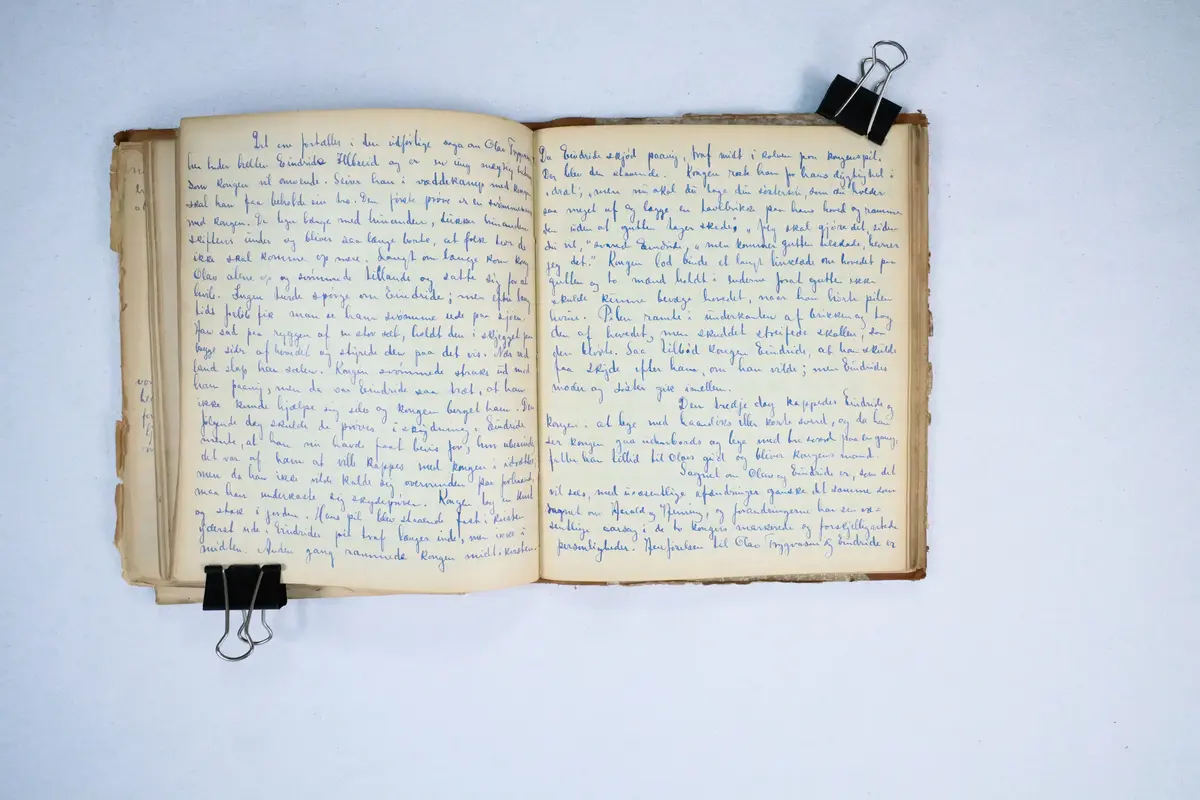 Det ene fortælles i den vidførlige saga om Olav Trygvason
heller Eindride Ilbreid og er en ung mægtig
som kongen vil omvende. Seirer han i væddekamp med kongen
skal han faa beholde sin tro. Den første prøve er en svømmening
med kongen. De leger længe med hinanden, dukker hinanden
skiftevis under og bliver saa længe borte, at folk tror de
ikke skal komme op mere. Langt om længe kom kong
Olav alene op og svømmede tillands og satte sig for at
hvile. Ingen turde spørge om Eindride; men efter lang
tids forløb fik man se ham svømme ude paa sjøen.
Han sad paa ryggen af en stor sæl, holdt den i skjegget paa
begge sider af hovedet og styrede den paa det vis. Nær ved
land slap han sælen. Kongen svømmede straks ud mod
ham paany, men da var Eindride saa træt, at han
ikke kunde hjælpe sig selv og kongen berget ham. Den
følgende dag skulde de prøves i skydning. Eindride
mente, at han nu havde faat bevis for, hvor
det var af ham at ville kappes med kongen i idrætter,
men da han ikke vilde kalde sig overvunden paa forhaand,
maa han underkaste sig skydeprøven. Kongen tog en
og stak i jorden. Hans pil blev staaende fast i
yderst ude; Eindrides pil traf længer inde, men ikke i
midten. Anden gang rammede kongen midt
Da Eindride skjød paany, traf midt i kolven paa kongens pil.
Der blev den staaende. Kongen roste ham for hans dygtighed i
"dræt; „men nu skal du tage din søstersøn, som du holder
saa meget af og lægge en tavlbrikke paa hans hoved og ramme
den uden at gutten tager skade." „Jeg skal gjøre det, siden
du vil," svared Eindride, „men kommer gutten tilskade, hevner
jeg det." Kongen lod binde et langt linklæde om hovedet paa
gutten og to mænd holdt i enderne forat gutten ikke
skulde kunne bevæge hovedet, naar han hørte pilen
hvine. Pilen ramte i underkanten af brikken og tog
den af hovedet, men skuddet streifede skallen, saa
den blødte. Saa tilbød kongen Eindride, at han skulde
faa skyde efter ham, om han vilde; men Eindrides
moder og søster gik imellem.
Den tredje dag kappedes Eindride og
kongen at lege med haandsaks eller korte sverd, og da han
ser kongen gaa udenbords og lege med tre sverd paa en gang,
fatter han tillid til Olavs gud og bliver kongens mand.
Sagnet om Olav og Eindride er, som det
vil sees, med uvæsentlige afændringer ganske det samme som
sagnet om Harald og Heming, og forandringerne har sin væ-
sentlige aarsag i de to kongers markerede og forskjelligartede
personligheder. Henførelsen til Olav Trygvason og Eindride er